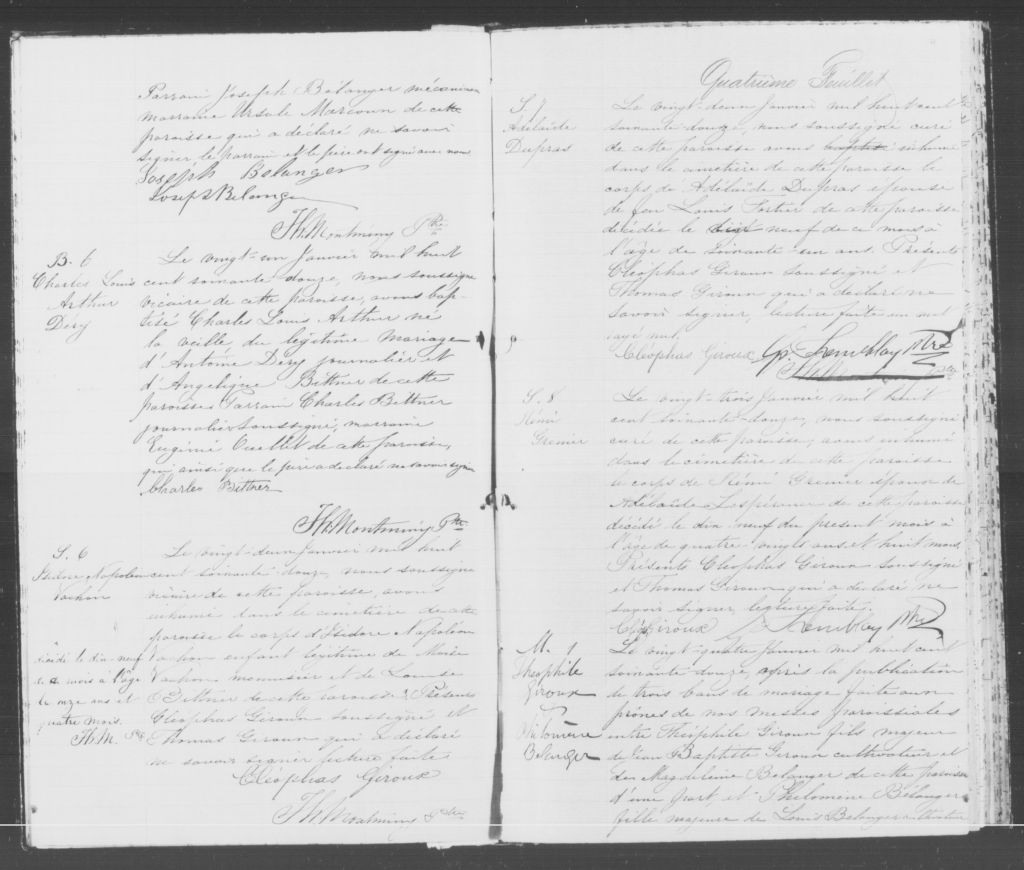 Parrain Joseph Bélanger mécanicien
marraine Ursule Marcoux de cette
paroisse qui a déclaré ne savoir
signer, le parrain et le père ont signé avec nous
Joseph Belanger
Joseph Belanger
Th. Montminy Ptre
B. 6
Charles Louis
Arthur
Déry
Le vingt-un Janvier mil huit
cent soixante douze, nous soussigné
vicaire de cette paroisse, avons bap-
tisé Charles Louis Arthur né
la veille du légitime mariage
d'Antoine Déry journalier et
d'Angelique Bittner de cette
paroisse. Parrain Charles Bittner
journalier soussigné, marraine
Eugénie Ouellet de cette paroisse,
qui ainsi que le père a déclaré ne savoir signer
Charles Bittner
Th. Montminy Ptre
S. 6
Isidore Napoléon
Vachon
Le vingt-deux Janvier mil huit
cent soixante douze, nous soussigné
vicaire de cette paroisse, avons
inhumé dans le cimetière de cette
paroisse le corps d'Isidore Napoléon
Vachon enfant légitime de
Vachon menuisier et de Louise
Bittner de cette paroisse. Présents
Cléophas Giroux soussigné et
Thomas Giroux qui a déclaré
ne savoir signer lecture faite
décédé le dix-neuf
de ce mois à l'âge
de onze ans et
quatre mois.
Th. M. Ptre
Cleophas Giroux
Th. Montminy Ptre
Quatrième Feuillet
S. 7
Adélaïde
Dupras
Le vingt-deux Janvier mil huit cent
soixante douze, nous soussigné curé
de cette paroisse avons inhumé
dans le cimetière de cette paroisse le
corps de Adélaïde Dupras épouse
de feu Louis Fortier de cette paroisse
décédée le dix neuf de ce mois à
l'âge de soixante un ans. Présents
Cléophas Giroux soussigné et
Thomas Giroux qui a déclaré ne
savoir signer, lecture faite un mot
rayé nul.
Cléophas Giroux G. Tremblay Ptre
S. 8
Rémi
Grenier
Le vingt-trois Janvier mil huit
cent soixante-douze, nous soussigné
curé de cette paroisse, avons inhumé
dans le cimetière de cette paroisse
le corps de Rémi Grenier époux de
Adélaïde Lespérance de cette paroisse
décédé le dix neuf du présent mois à
l'âge de quatre-vingts ans et huit mois.
Présents Cléophas Giroux soussigné
et Thomas Giroux qui a déclaré ne
savoir signer, lecture faite.
Cl. Giroux G. Tremblay Ptre
M. 1
Théophile
Giroux
&
Philomène
Belanger
Le vingt-quatre Janvier mil huit cent
soixante douze, après la publication
de trois bans de mariage faite aux
prônes de nos messes paroissiales
entre Théophile Giroux fils majeur
de Jean Baptiste Giroux cultivateur et
de Magdeleine Belanger de cette paroisse
d'une part, et Philomène Bélanger
fille majeure de Louis Belanger cultivateur